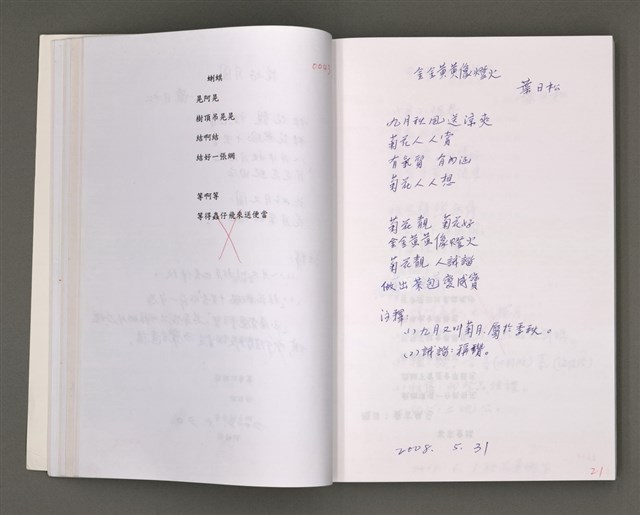 0045
蝲蟧
晃阿晃
樹頂吊晃晃
結啊結
結好一張網
等啊等
等得蟲仔飛來送便當
金金黃黃像燈火
葉日松
九月秋風送涼爽
菊花人人賞
有氣質 有內涵
菊花人人想
菊花靚 菊花好
金金黃黃像燈火
菊花靚 人訏譑
做出茶包變成寶
注釋：
(1)九月又叫菊月.屬於季秋。
：稱讚。
2008. 5. 31
21